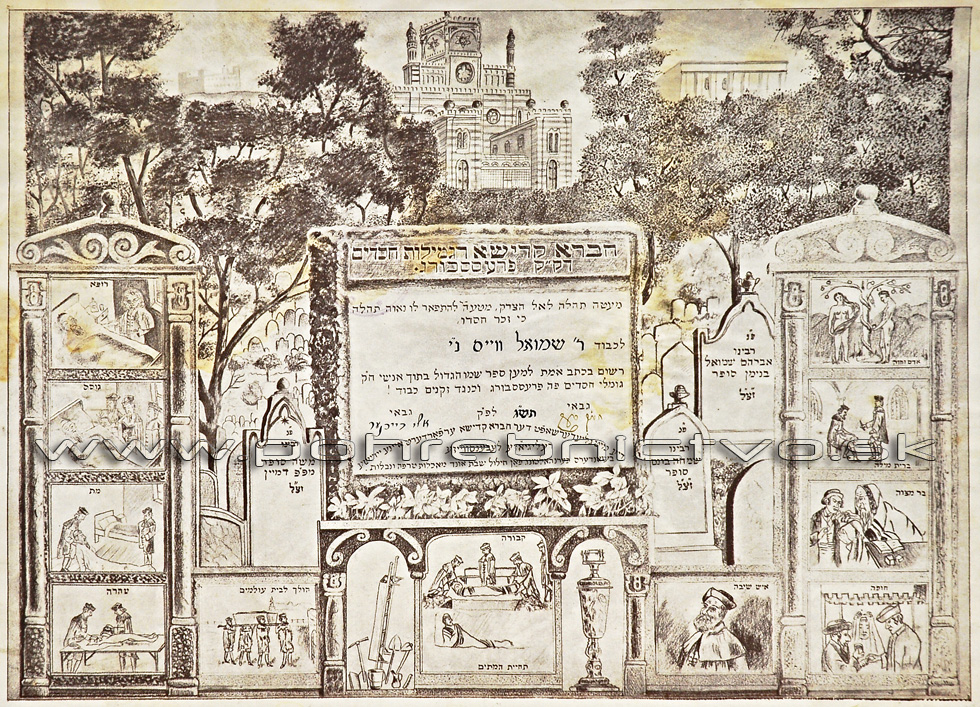 חברא קדישא דגמילות חסדים
דק״ק פרעססבורג.
מיעשה תהלה לאל הצדק, משמיעה להתפאר לו נאוה תהלה
כי זכר חסדו,
לכבוד ר' שמואל ווייס נ״י
רשום בכתב אמת למען ספר שמו הגדול בתוך אנשי ח״ק
גומלי חסדים פה פרעססבורג וכנגד זקנים כבוד!
גבאי לפ״ק גבאי
דער חברא קדישא
חילול שבת אונד מאכלות טרפה ונבלות
רופא
גוסס
מת
טהרה
הולך לבית עולמים
קבורה
תחיית המתים
איש שיבה
אדם וחוה
ברית מילה
בר מצוה
חופה
פ״נ
רבינו
אברהם שמואל
בנימן סופר
זצ״ל
פ״נ
רבינו
שמחה בונם
סופר
זצ״ל
משה סופר
מפ״פ דמיין
זצ״ל
www.pohrebnictvo.sk